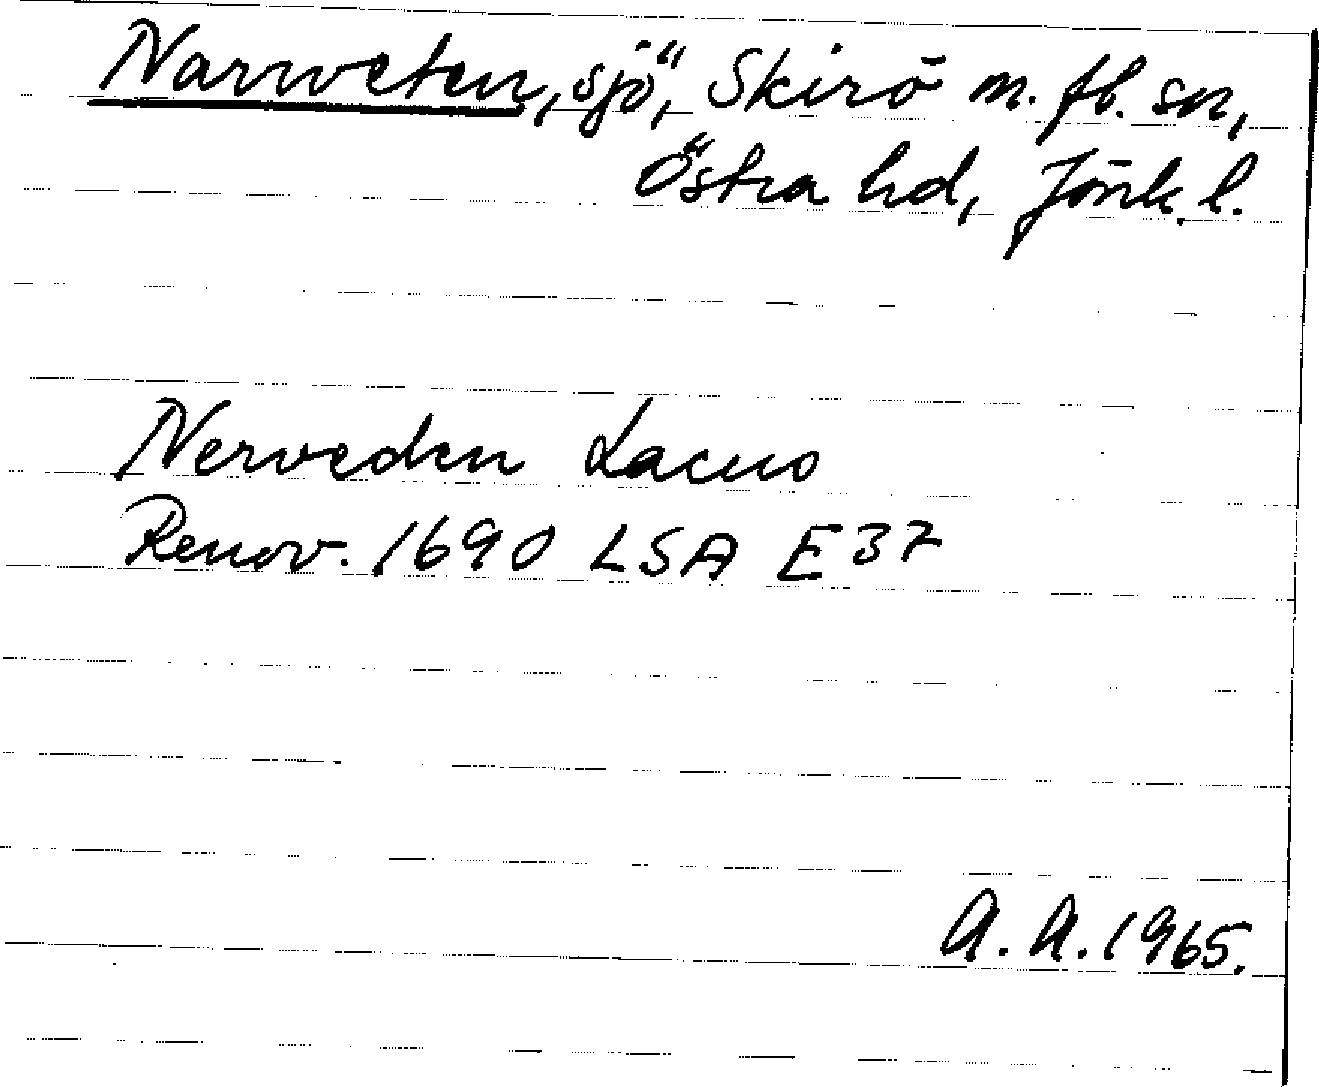 Narweten, sjö, Skirö m. fl. sn,
Östra hd, Jönk. l.
Nerveden Lacus
Renov. 1690 LSA E37
A. A. 1965.